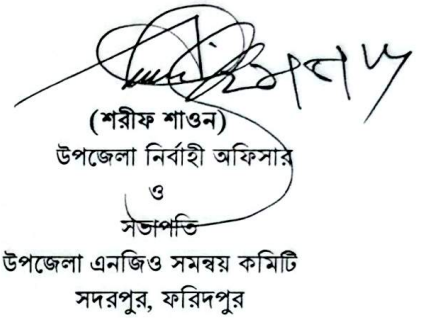 (শরীফ শাওন)
উপজেলা নির্বাহী অফিসার
ও
সভাপতি
উপজেলা এনজিও সমন্বয় কমিটি
সদরপুর, ফরিদপুর